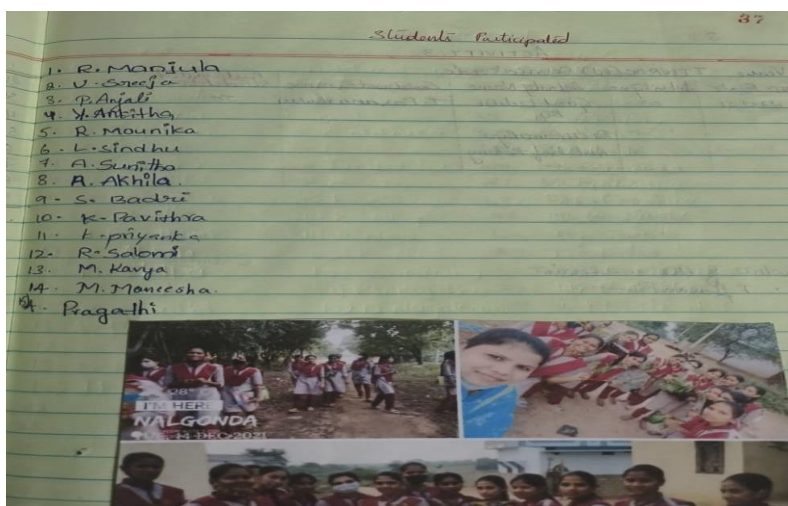 37
Students Participated
1. R. Manjula
2. V. Sreeja
3. P. Anjali
4. Y. Antitha
5. R. Mounika
6. L. Sindhu
7. A. Sunitha
8. A. Akhila.
9. S. Badri
10. K. Pavithra
11. K. priyanka
12. R. Salomi
13. M. Kavya
14. M. Moneesha.
Pragathi
08
I'M HERE
NALGONDA
14-DEC-2021